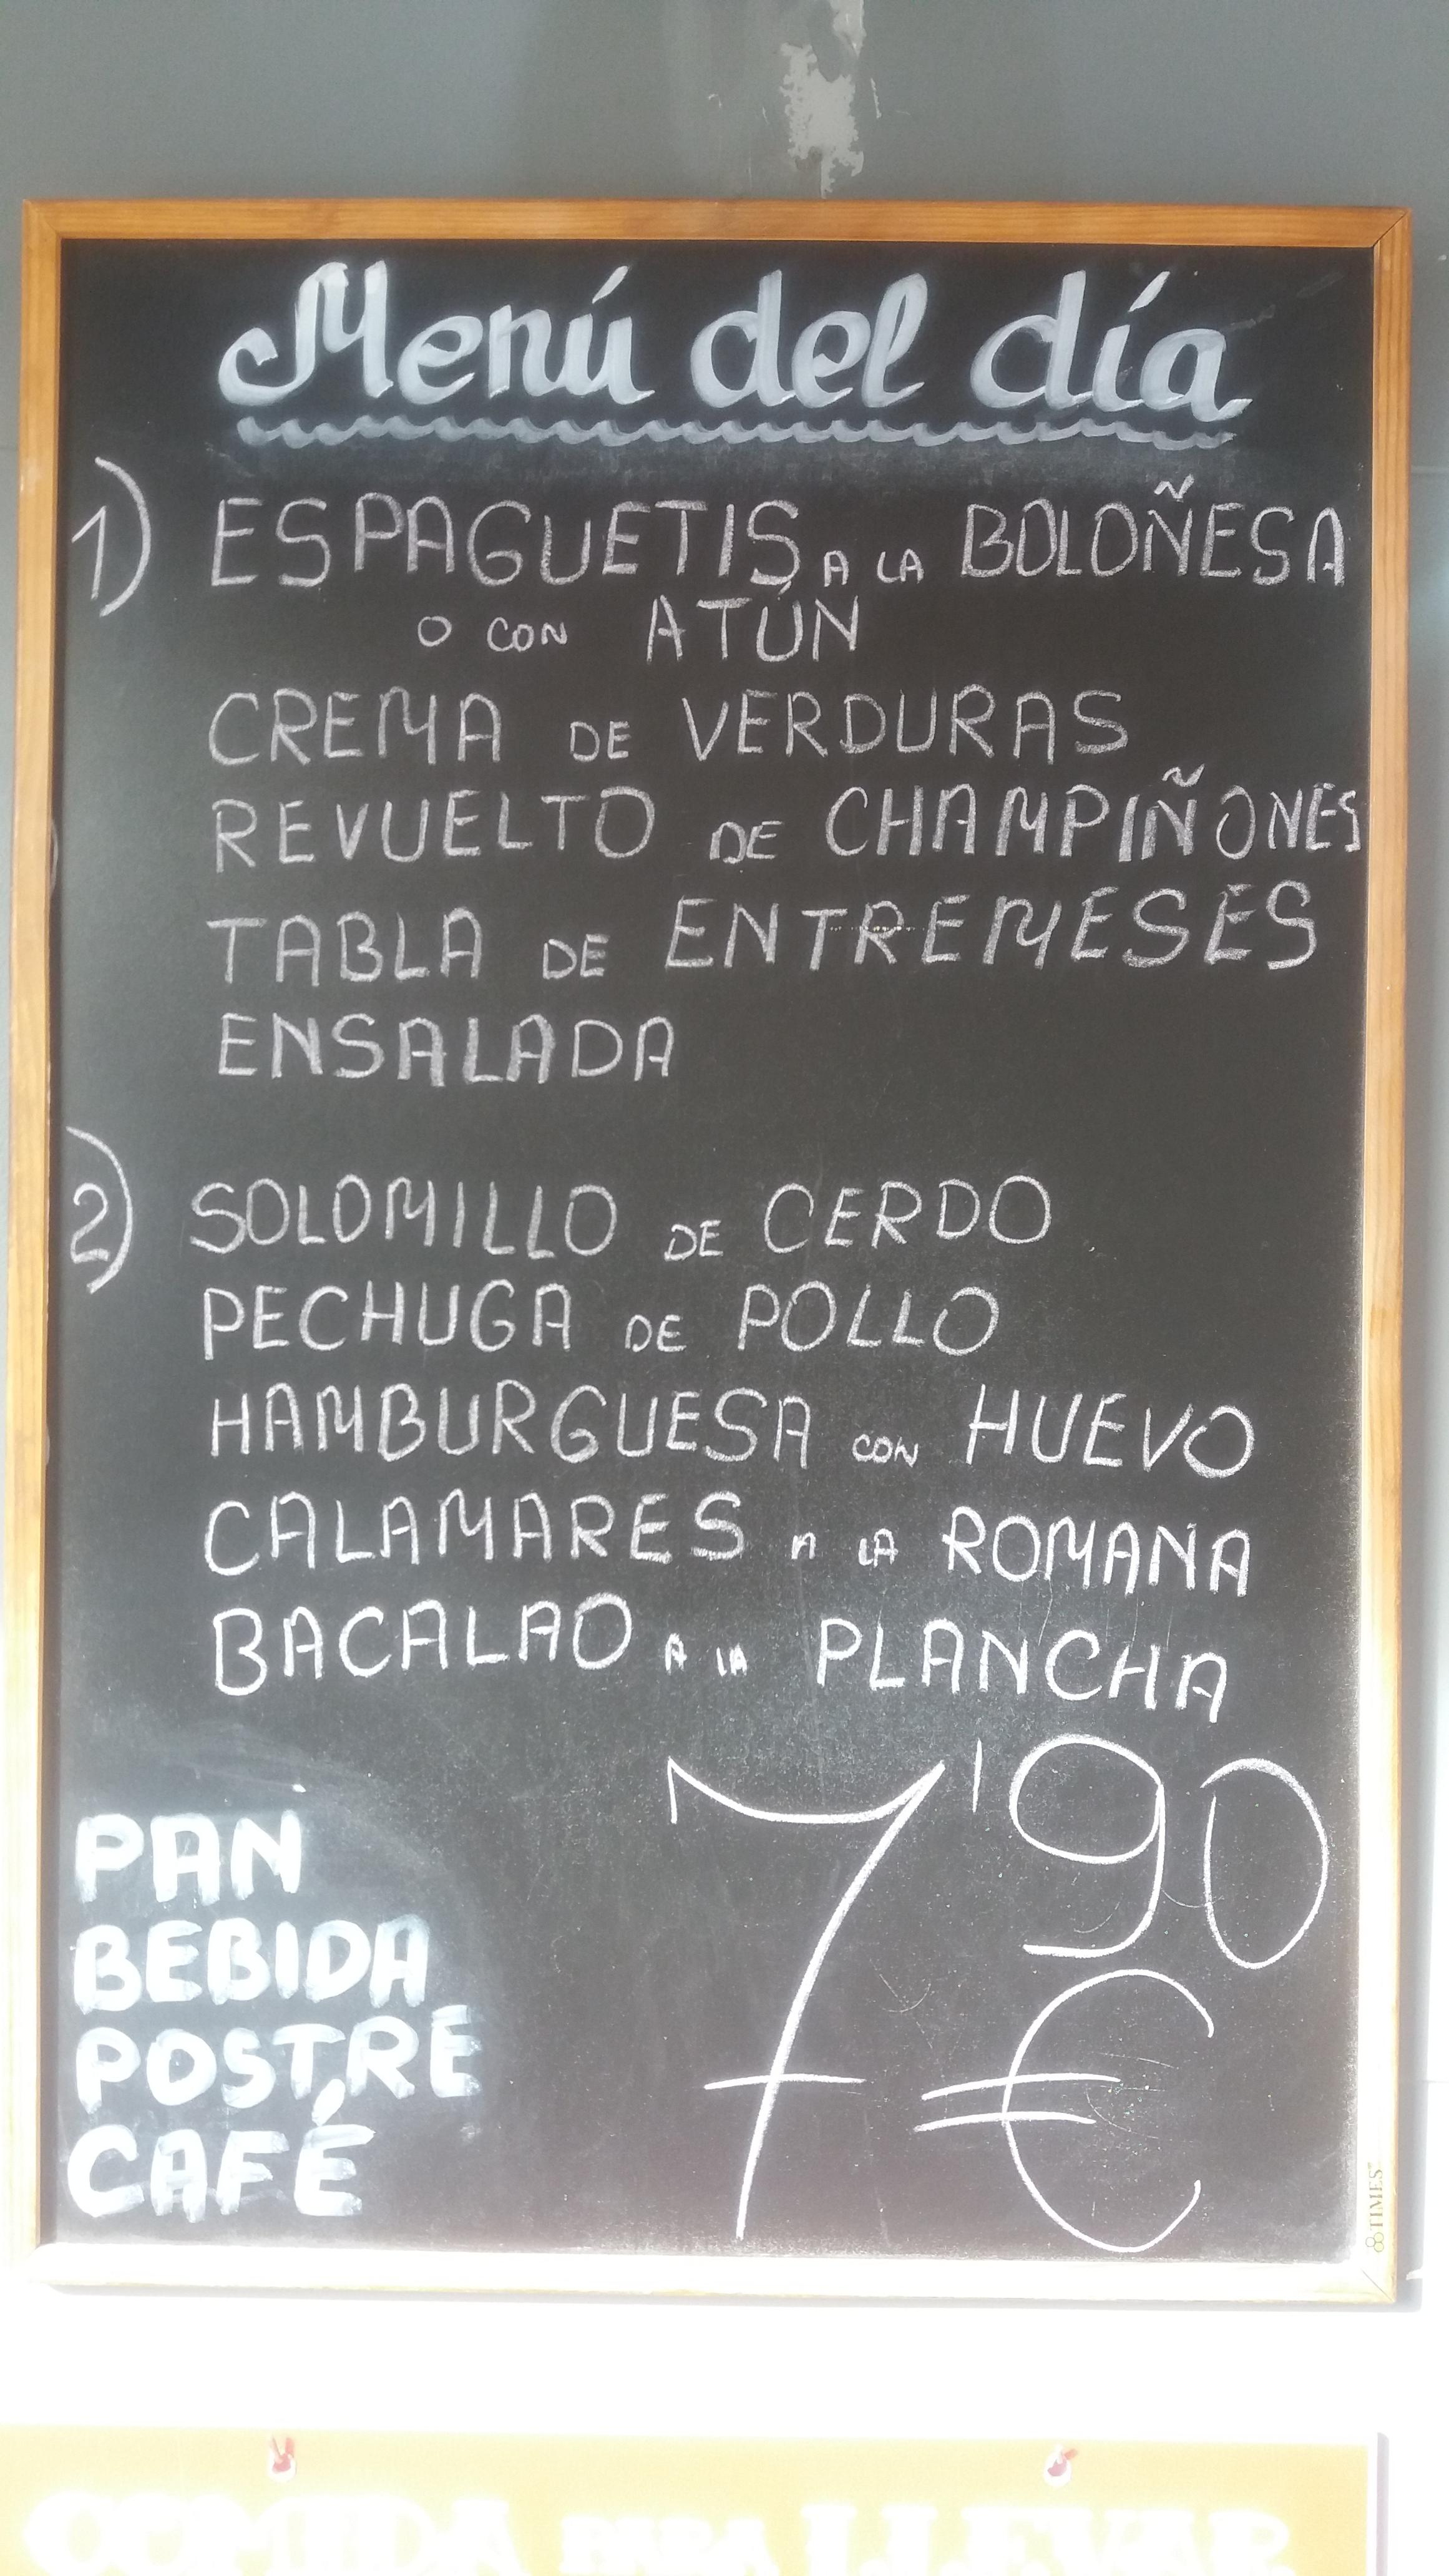 Menú del día
1) ESPAGUETIS A LA BOLOÑESA
O CON ATÚN
CREMA DE VERDURAS
REVUELTO DE CHAMPIÑONES
TABLA DE ENTREMESES
ENSALADA
2) SOLOMILLO DE CERDO
PECHUGA DE POLLO
HAMBURGUESA CON HUEVO
CALAMARES A LA ROMANA
BACALAO A LA PLANCHA
7'90
€
PAN
BEBIDA
POSTRE
CAFÉ
TIMES
COMIDA PARA LLEVAR